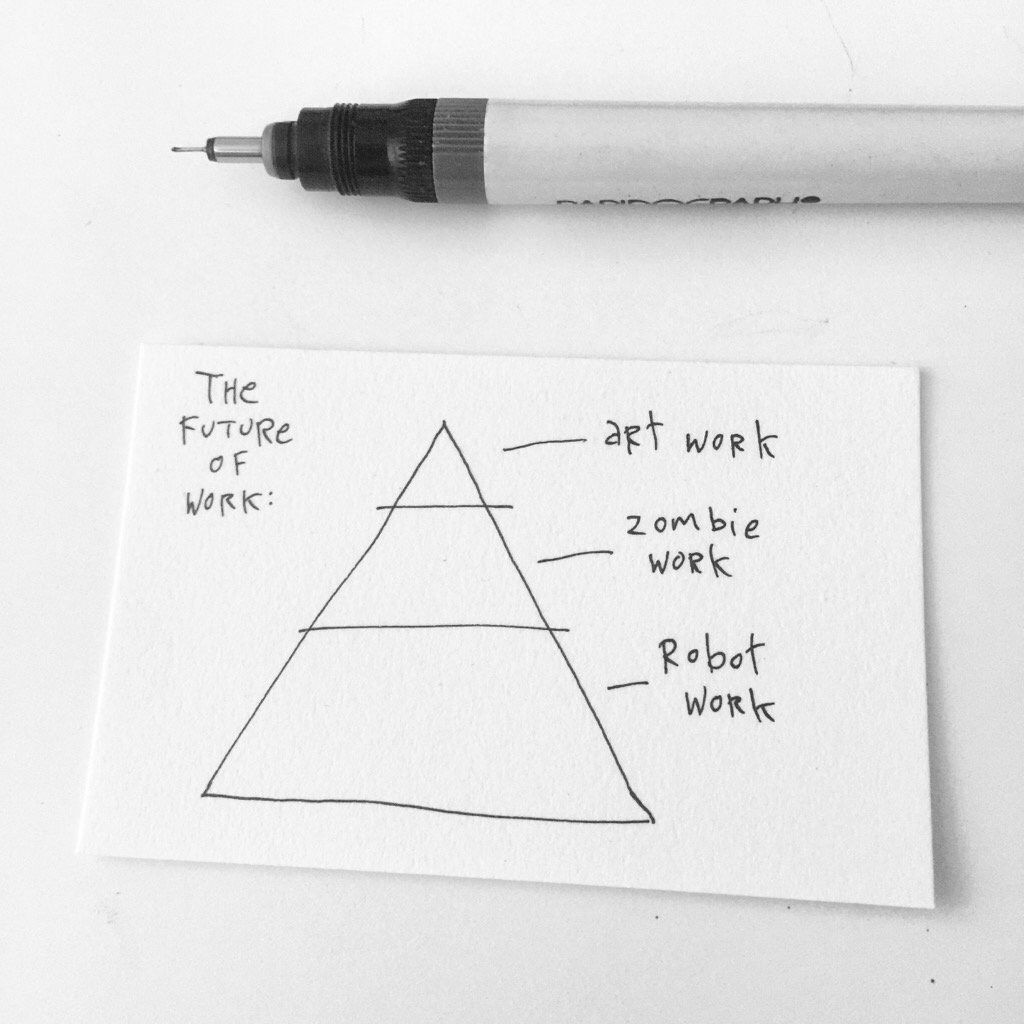 RAPIDOGRAPH
THE
FUTURE
OF
WORK:
art work
zombie
work
Robot
work